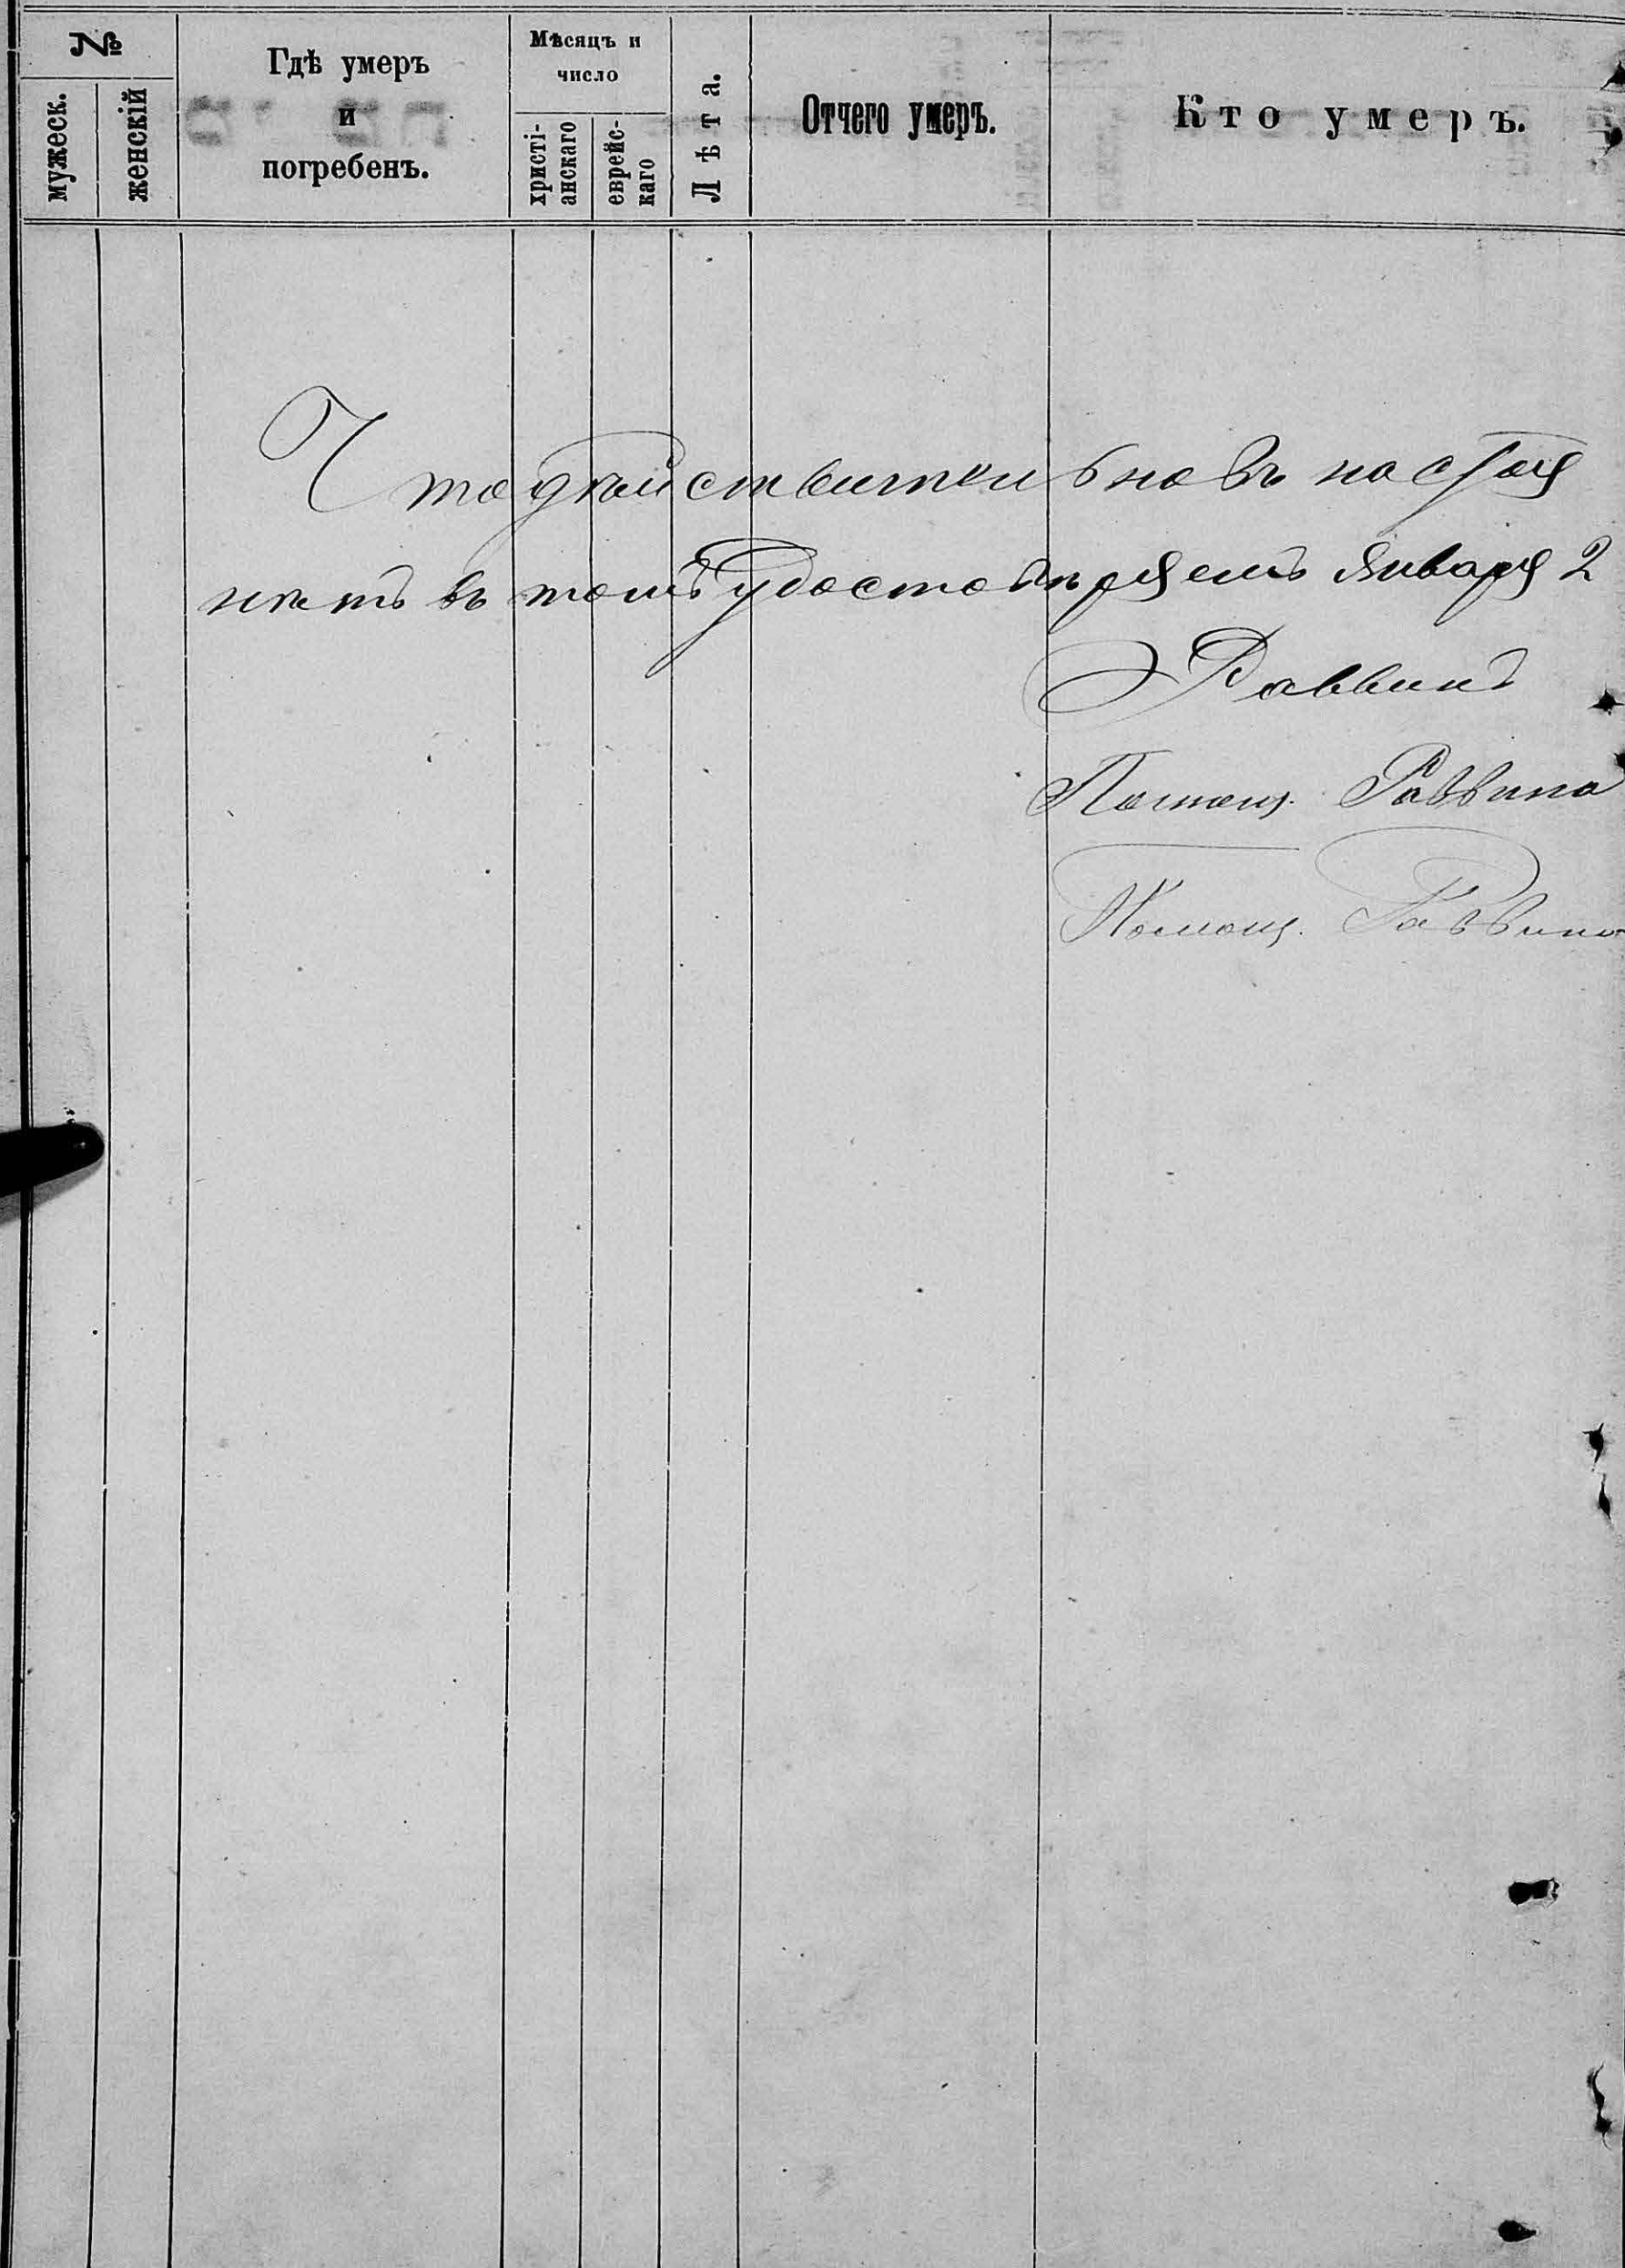 №
мужеск.
женскій
Гдѣ умеръ
и
погребенъ.
Мѣсяцъ и
число
христі-
анскаго
еврейс-
каго
Лѣта.
Отчего умеръ.
Кто умеръ.
Что дѣйствительно въ настоя
нѣтъ въ томъ удостовѣряемъ Января 2
Раввинъ
Помощ. Раввина
Помощ. Раввина